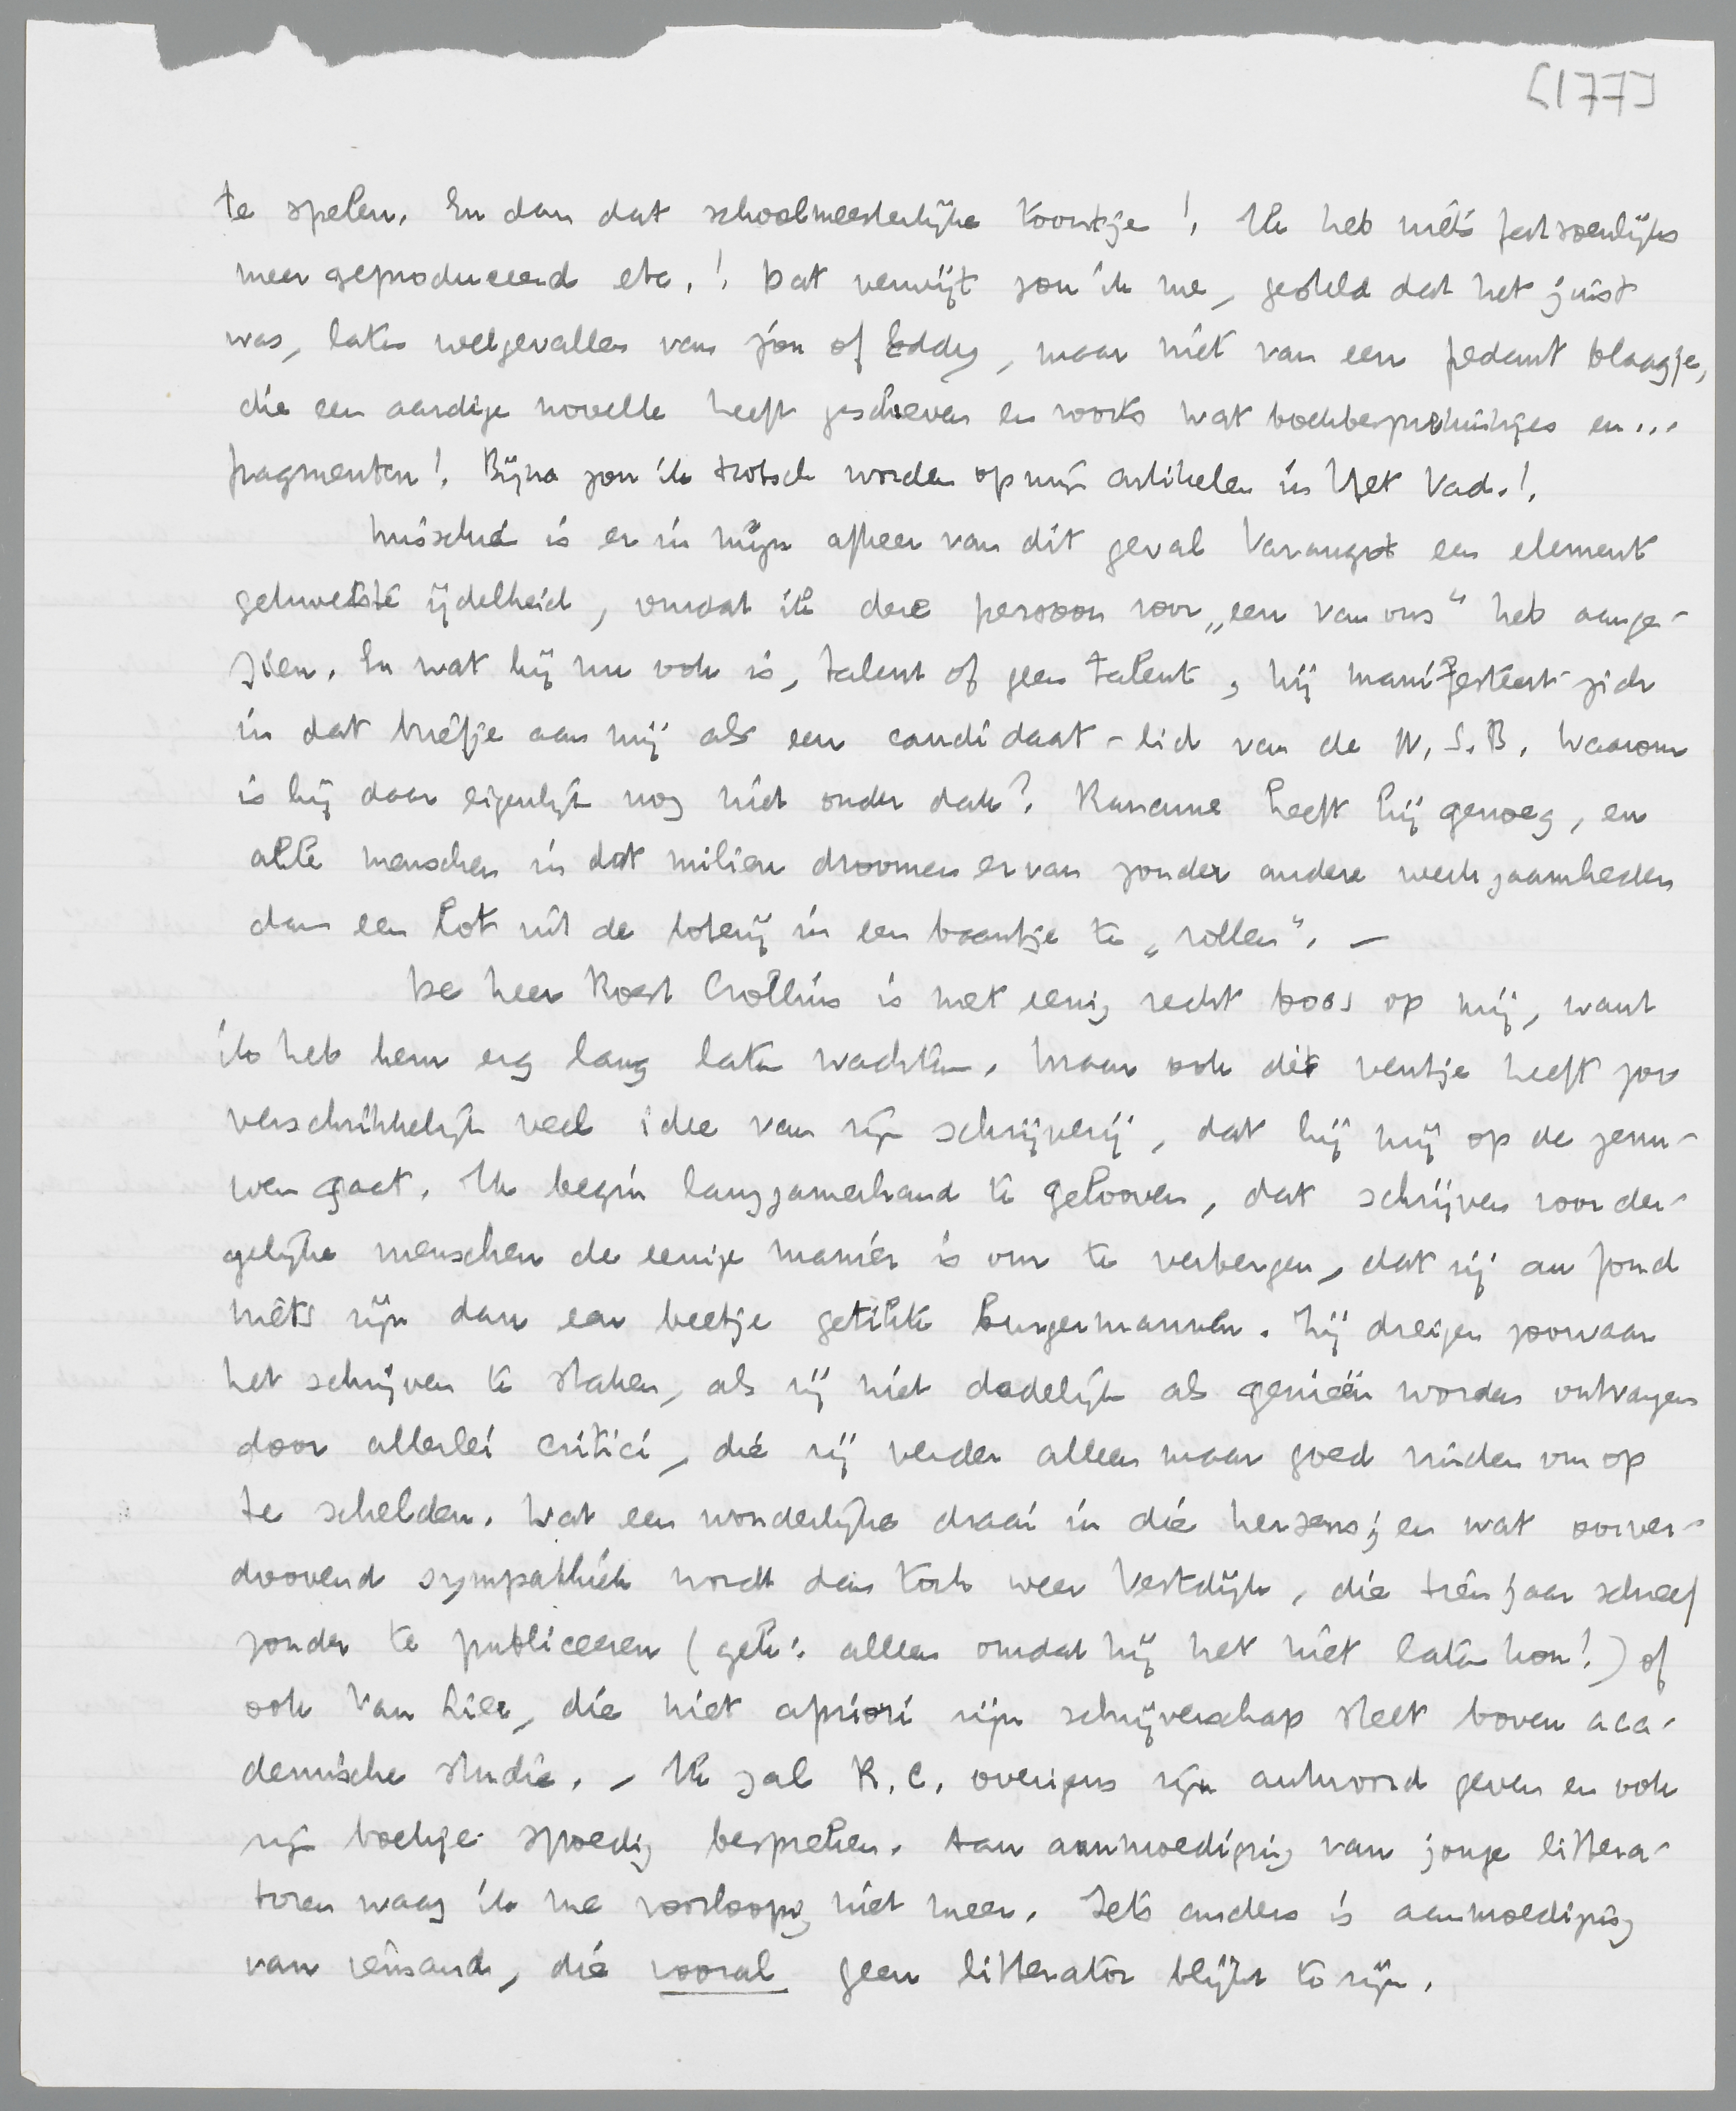 [177]
te spelen. En dan dat schoolmeesterlijke toontje! Ik heb niets fatsoenlijks
meer geproduceerd etc.! Dat verwijt zou ik me, gesteld dat het juist
was, laten welgevallen van jou of Eddy, maar niet van een pedant blaagje,
die een aardige novelle heeft geschreven en voorts wat boekbesprekinkjes en...
fragmenten! Bijna zou ik trotsch worden op mijn artikelen in Het Vad.!
Misschien is er in mijn afkeer van dit geval Varangot een element
gekwetste ijdelheid, omdat ik deze persoon voor „een van ons" heb aange-
zien. En wat hij nu ook is, talent of geen talent, hij manifesteert zich
in dat briefje aan mij als een candidaat-lid van de N.S.B. Waarom
is hij daar eigenlijk nog niet onder dak? Rancune heeft hij genoeg, en
alle menschen in dat milieu droomen ervan zonder andere werkzaamheden
dan een lot uit de loterij in een baantje te „rollen". –
De heer Roest Crollius is met eenig recht boos op mij, want
ik heb hem erg lang laten wachten. Maar ook dit ventje heeft zoo
verschrikkelijk veel idee van zijn schrijverij, dat hij mij op de zenu-
wen gaat. Ik begin langzamerhand te gelooven, dat schrijven voor der-
gelijke menschen de eenige manier is om te verbergen, dat zij au fond
niets zijn dan een beetje getikte burgermannen. Zij dreigen zoowaar
het schrijven te staken, als zij niet dadelijk als genieën worden ontvangen
door allerlei critici, die zij verder alleen maar goed vinden om op
te schelden. Wat een wonderlijke draai in die hersens; en wat oorver-
doovend sympathiek wordt dan toch weer Vestdijk, die tien jaar schreef
zonder te publiceeren (gek: alleen omdat hij het niet laten kon!) of
ook Van Lier, die niet apriori zijn schrijverschap stelt boven aca-
demische studie. – Ik zal R.C. overigens zijn antwoord geven en ook
zijn boekje spoedig bespreken. Aan aanmoediging van jonge littera-
toren waag ik me voorloopig niet meer. Iets anders is aanmoediging
van iemand, die vooral geen litterator blijkt te zijn.